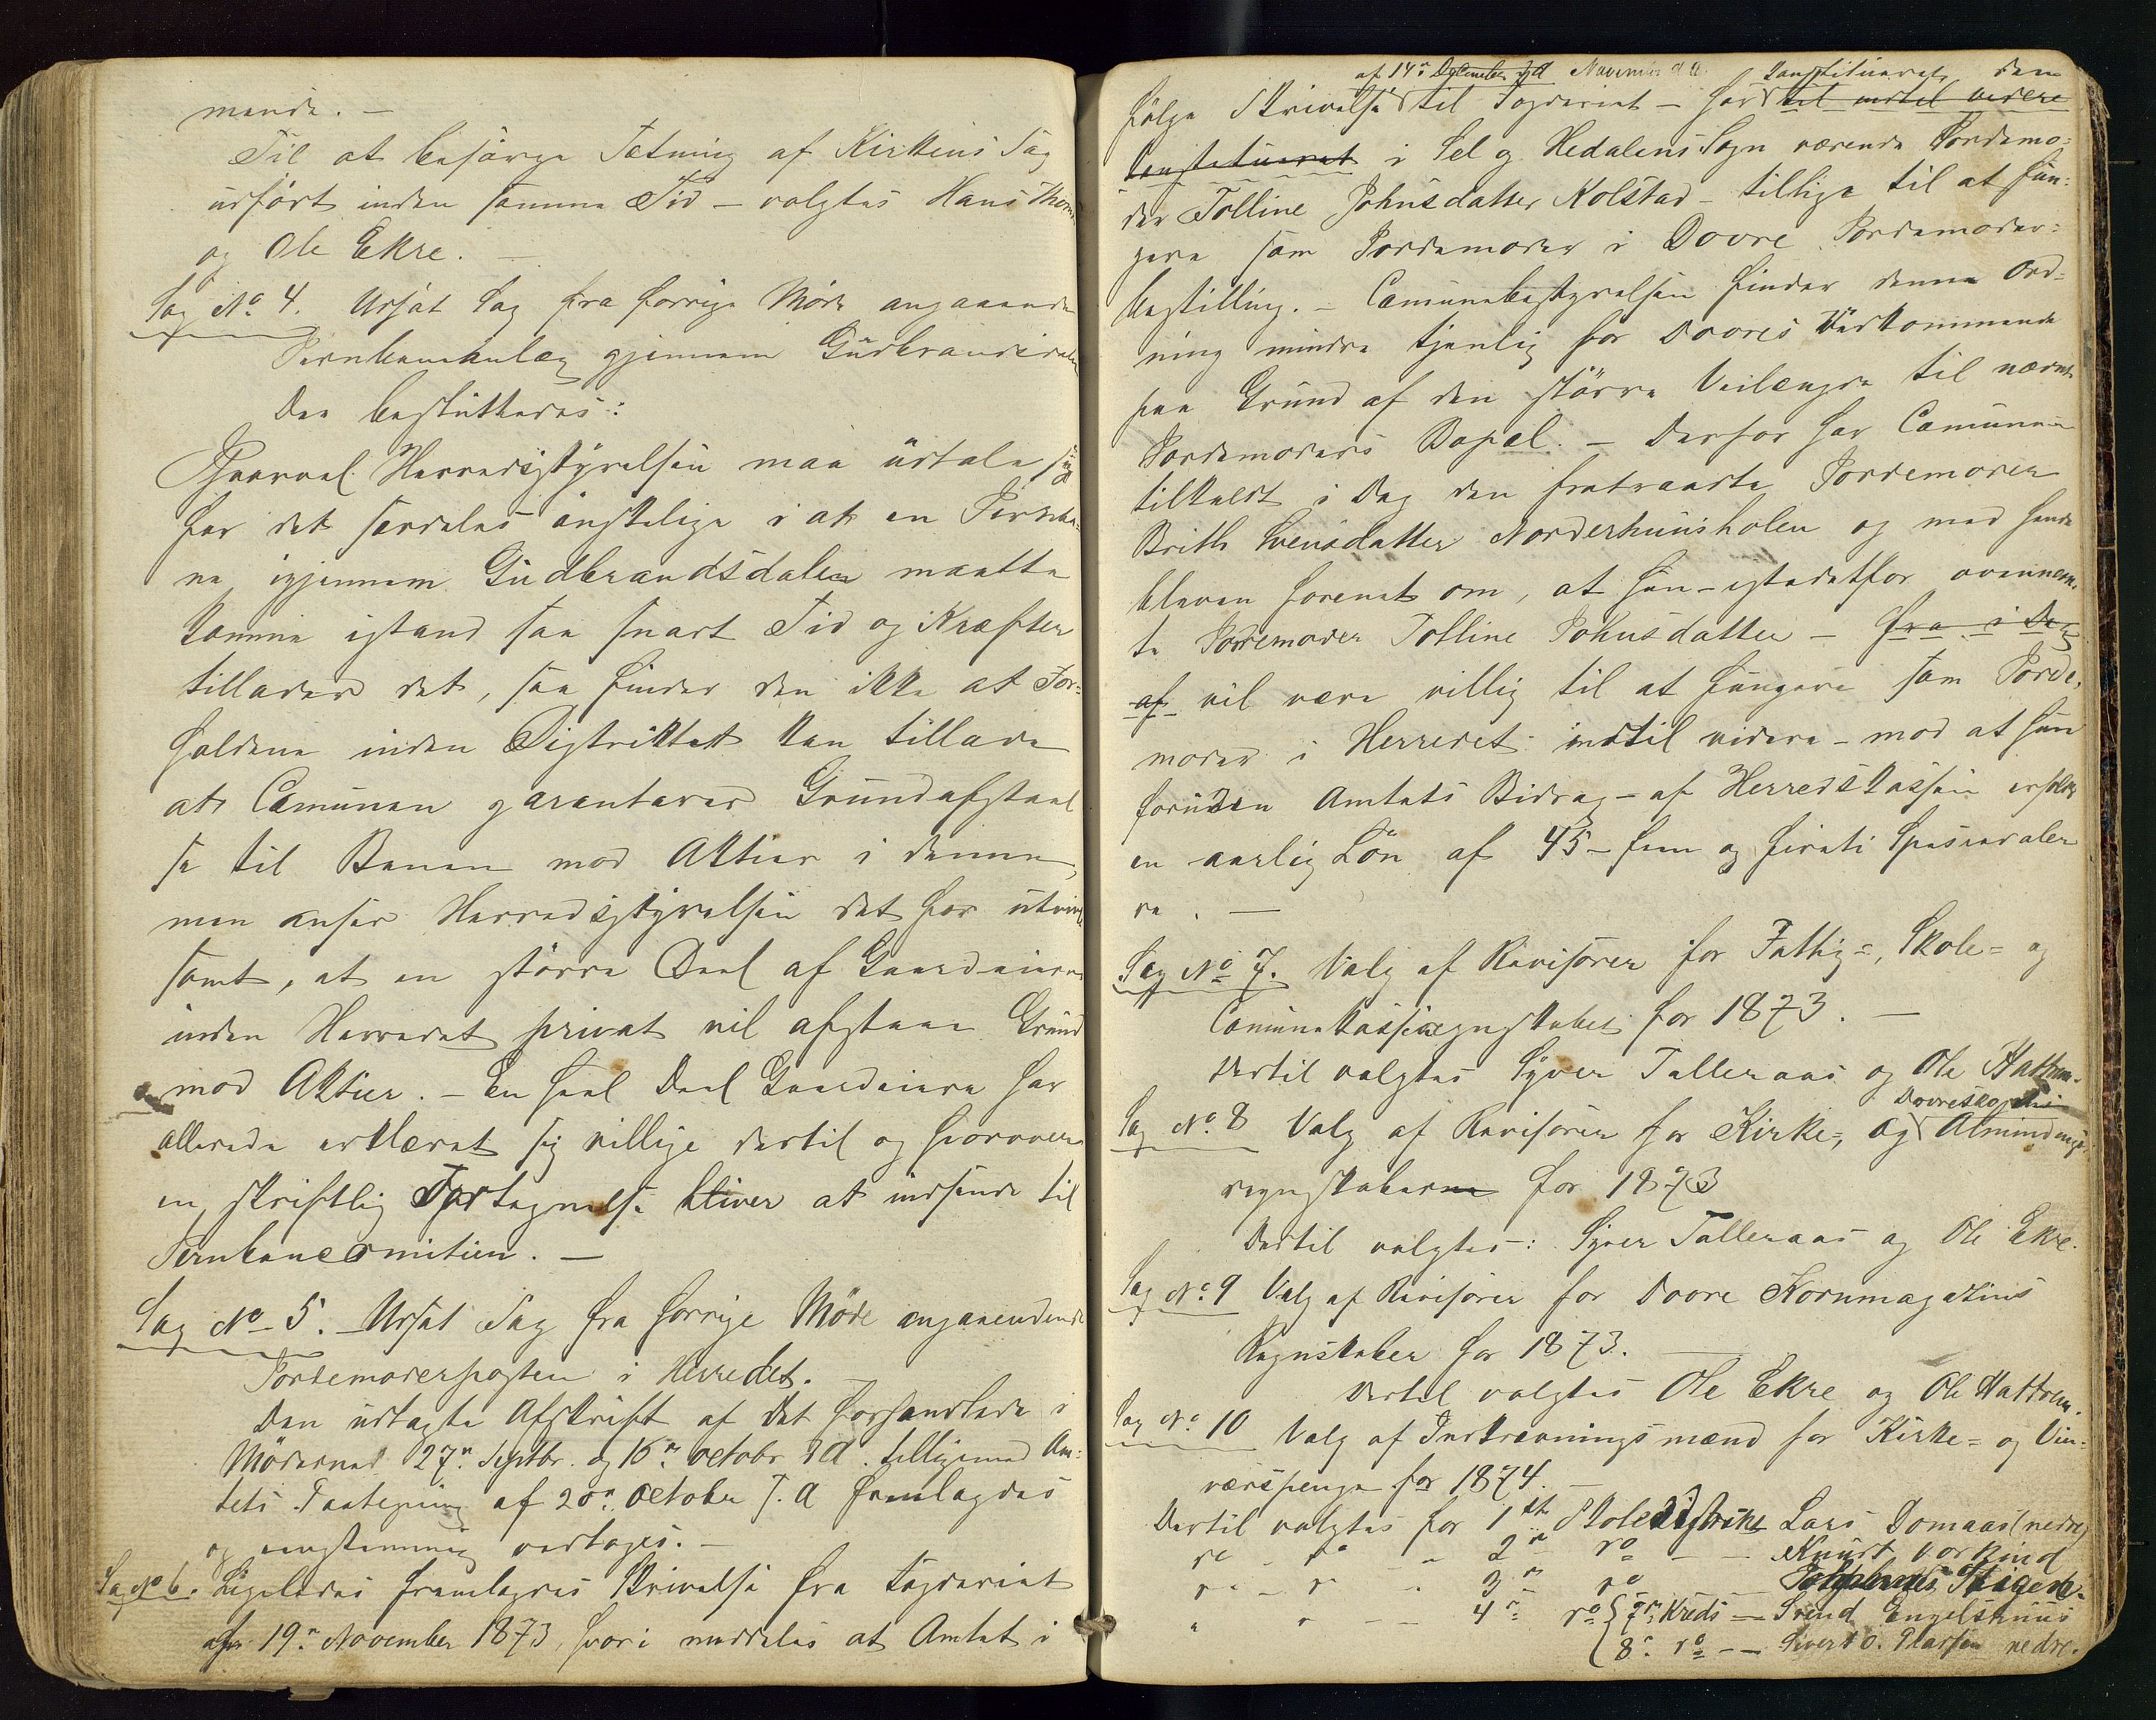 mende. —
Til at besörge Tætning af Kirkens Tag
udfört inden samme Tid – valgtes Hans
og Ole Ekre. —
Sag No. 4. Udsat Sag fra forrige Möde angaaende
Jernbaneanlæg gjennem Gudbrandsdalen
Der besluttedes:
Herredsstyrelsen maa udtale sig
for det særdeles önskelige i at en Jernba-
ne igjennem Gudbrandsdalen maatte
komme istand saa snart Tid og Kræfter
tillader det, saa finder den ikke at For-
holdene inden Distriktet kan tillade
at Comunen garanterer Grundafstaael
se til Banen mod Aktier i denne,
men anser Herredsstyrelsen det for utvivl
somt, at en större Deel af Gaardeiere
inden Herredet privat vil afstaae Grund
mod Aktier. – En heel Deel Gaardeiere har
allerede erklæret sig villige dertil og hvorover
en skriftlig Fortegnelse bliver at indsende til
Jernbanecomitien. —
Sag No 5. – Udsat Sag fra forrige Möde angaaendende
Jordemoderposten i Herredet.
Den udtagte Afskrift af det forhandlede i
Möderne 27de Septbr. og 16de octobr d.A. tilligemed Am-
tets Paategning af 20de October s. A fremlagdes
og vedtoges. –
Sag No 6. Ligeledes fremlagdes Skrivelse fra Fogderiet
af 19de November 1873, hvori meddeles at Amtet i
af 14de December d A November d. A. Constitueret den
fölge Skrivelse til Fogderiet – har til indtil videre
Constitueret i Sel og Hedalens Sogn værende Jordemo-
der Tolline Johnsdatter Kolstad – tillige til at fun-
gere som Jordemoder i Dovre Jordemoder-
bestilling. – Comunebestyrelsen finder denne Ord-
ning mindre tjenlig for Dovres Vedkommende
paa Grund af den större Veilængde til nævnte
Jordemoders Bopæl. – Derfor har Comunen
tilkaldt i Dag den fratraadte Jordemoder
Brith Svensdatter Norderhuusholen og med hende
bleven forenet om, at hun – istedetfor ovennævn-
te Jordemoder Tolline Johnsdatter – fra i Dag
af vil være villig til at fungere som Jorde-
moder i Herredet indtil videre – mod at hun
foruden Amtets Bidrag – af Herredskassen erholder
en aarlig Lön af 45 – fem og fireti Speciedaler
re. —
Sag No 7. Valg af Revisorer for Fattig-, Skole- og
Comunekasseregnskabet for 1873. —
Dertil valgtes Syver Talleraas og Ole Hattrem.
Dovreskovens
Sag No. 8 Valg af Revisorer for Kirke-, og Almindings
regnskaberne for 1873
Dertil valgtes: Syver Talleraas og Ole Ekre.
Sag No. 9 Valg af Revisorer for Dovre Kornmagazins
Regnskaber for 1873. —
Dertil valgtes Ole Ekre og Ole Hattrem.
Sag No. 10 Valg af Indkrævningsmænd for Kirke- og Vin-
værspenge for 1874. —
Dertil valgtes for 1ste Skoledistrikt Lars Domaas (nedre)
do – do – 2de do – — Knudt Vorkind
do – do – 3de do
" do – — 4de do { 7de Kreds — Svend Engelshuus
{ 8de do – — Sivert O. nedre.